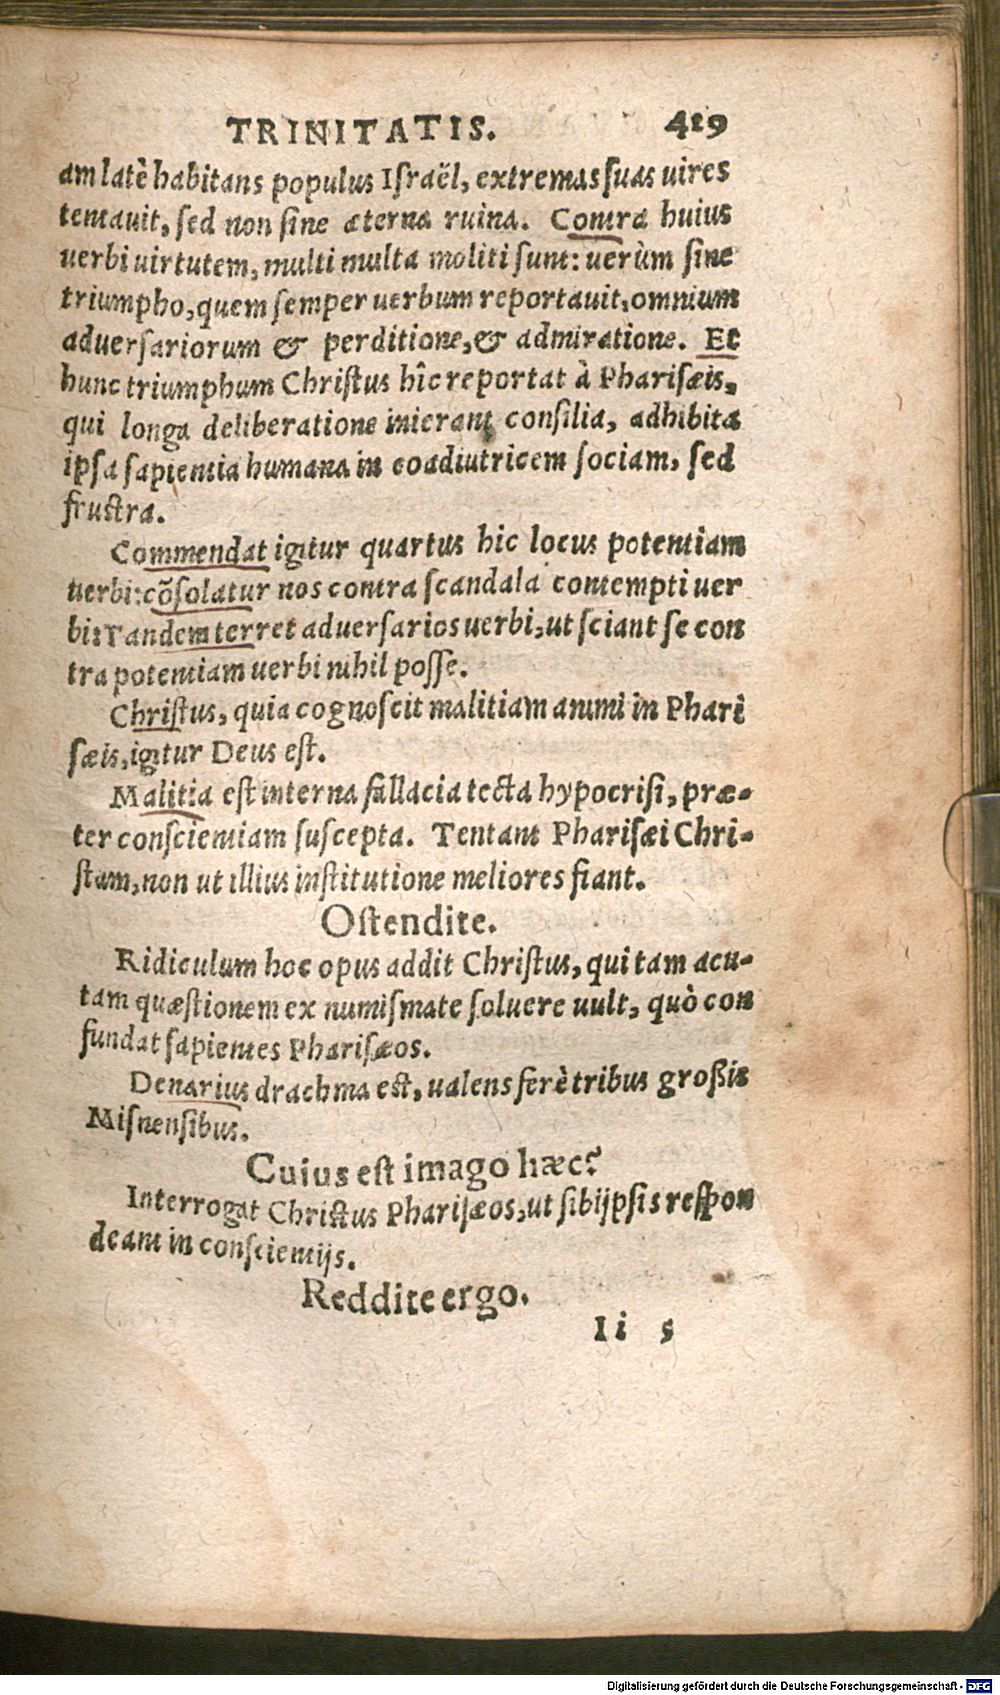 TRINITATIS. 419
am latè habitans populus Israël, extremas suas uires
tentauit, sed non sine æterna ruina. Contra huius
uerbi uirtutem, multi multa moliti sunt: uerùm sine
triumpho, quem semper uerbum reportauit, omnium
aduersariorum & perditione, & admiratione. Et
hunc triumphum Christus hîc reportat à Pharisæis,
qui longa deliberatione inierant consilia, adhibita
ipsa sapientia humana in coadiutricem sociam, sed
frustra.
Commendat igitur quartus hic locus potentiam
uerbi: cõsolatur nos contra scandala contempti uer
bi: Tandem terret aduersarios uerbi, ut sciant se con
tra potentiam uerbi nihil posse.
Christus, quia cognoscit malitiam animi in Phari
sæis, igitur Deus est.
Malitia est interna fallacia tecta hypocrisi, præ-
ter conscientiam suscepta. Tentant Pharisæi Chri-
stum, non ut illius institutione meliores fiant.
Ostendite.
Ridiculum hoc opus addit Christus, qui tam acu-
tam quæstionem ex numismate soluere uult, quò con
fundat sapientes Pharisæos.
Denarius drachma est, ualens ferè tribus großis
Misnensibus.
Cuius est imago hæc?
Interrogat Christus Pharisæos, ut sibijpsis respon
deant in conscientijs.
Reddite ergo.
Ii 5
Digitalisierung gefördert durch die Deutsche Forschungsgemeinschaft - DFG